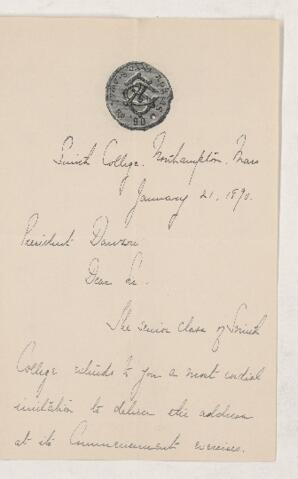 Smith College. Northampton, Mass
January 21, 1890.
President Dawson
Dear Sir.
The senior class of Smith
College extends to you a most cordial
invitation to deliver the address
at its Commencement exercises.